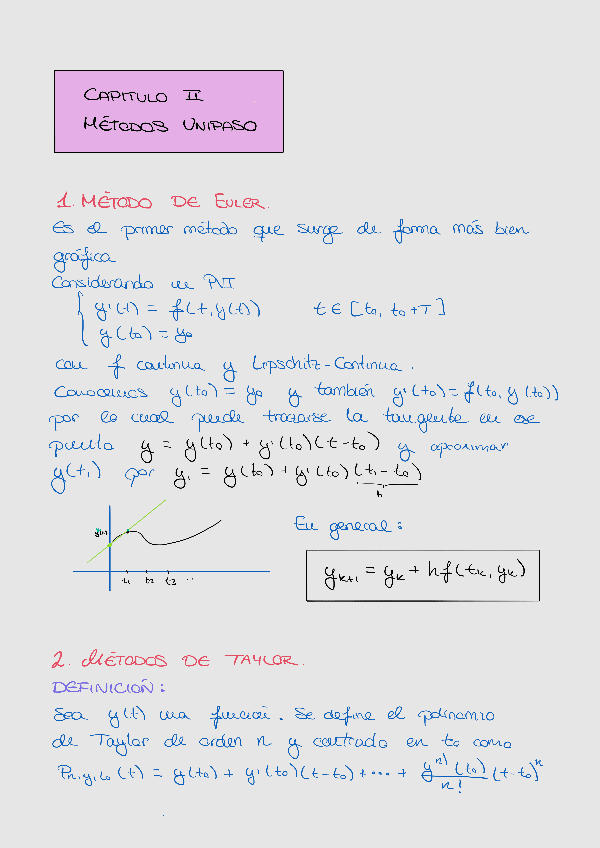 CAPITULO II
MÉTODOS UNIPASO
1. MÉTODO DE EULER.
Es el primer método que surge de forma más bien
gráfica
Considerando un PVI
y'(t) = f(t, y(t)) t ∈ [t₀, t₀+T]
y(t₀) = y₀
con f continua y Lipschitz-Continua.
Conocemos y(t₀) = y₀ y también y'(t₀) = f(t₀, y(t₀))
por lo cual puede trazarse la tangente en ese
punto y = y(t₀) + y'(t₀)(t-t₀) y aproximar
y(t₁) por y₁ = y(t₀) + y'(t₀)(t₁-t₀)
h
t₁ t₂ t₃ ..
En general:
yₖ₊₁ = yₖ + hf(tₖ, yₖ)
2. MÉTODOS DE TAYLOR.
DEFINICIÓN:
Sea y(t) una función. Se define el polinomio
de Taylor de orden n y centrado en t₀ como
Pn,y,t₀(t) = y(t₀) + y'(t₀)(t-t₀) + ... + yⁿ⁾(t₀)/n! (t-t₀)ⁿ